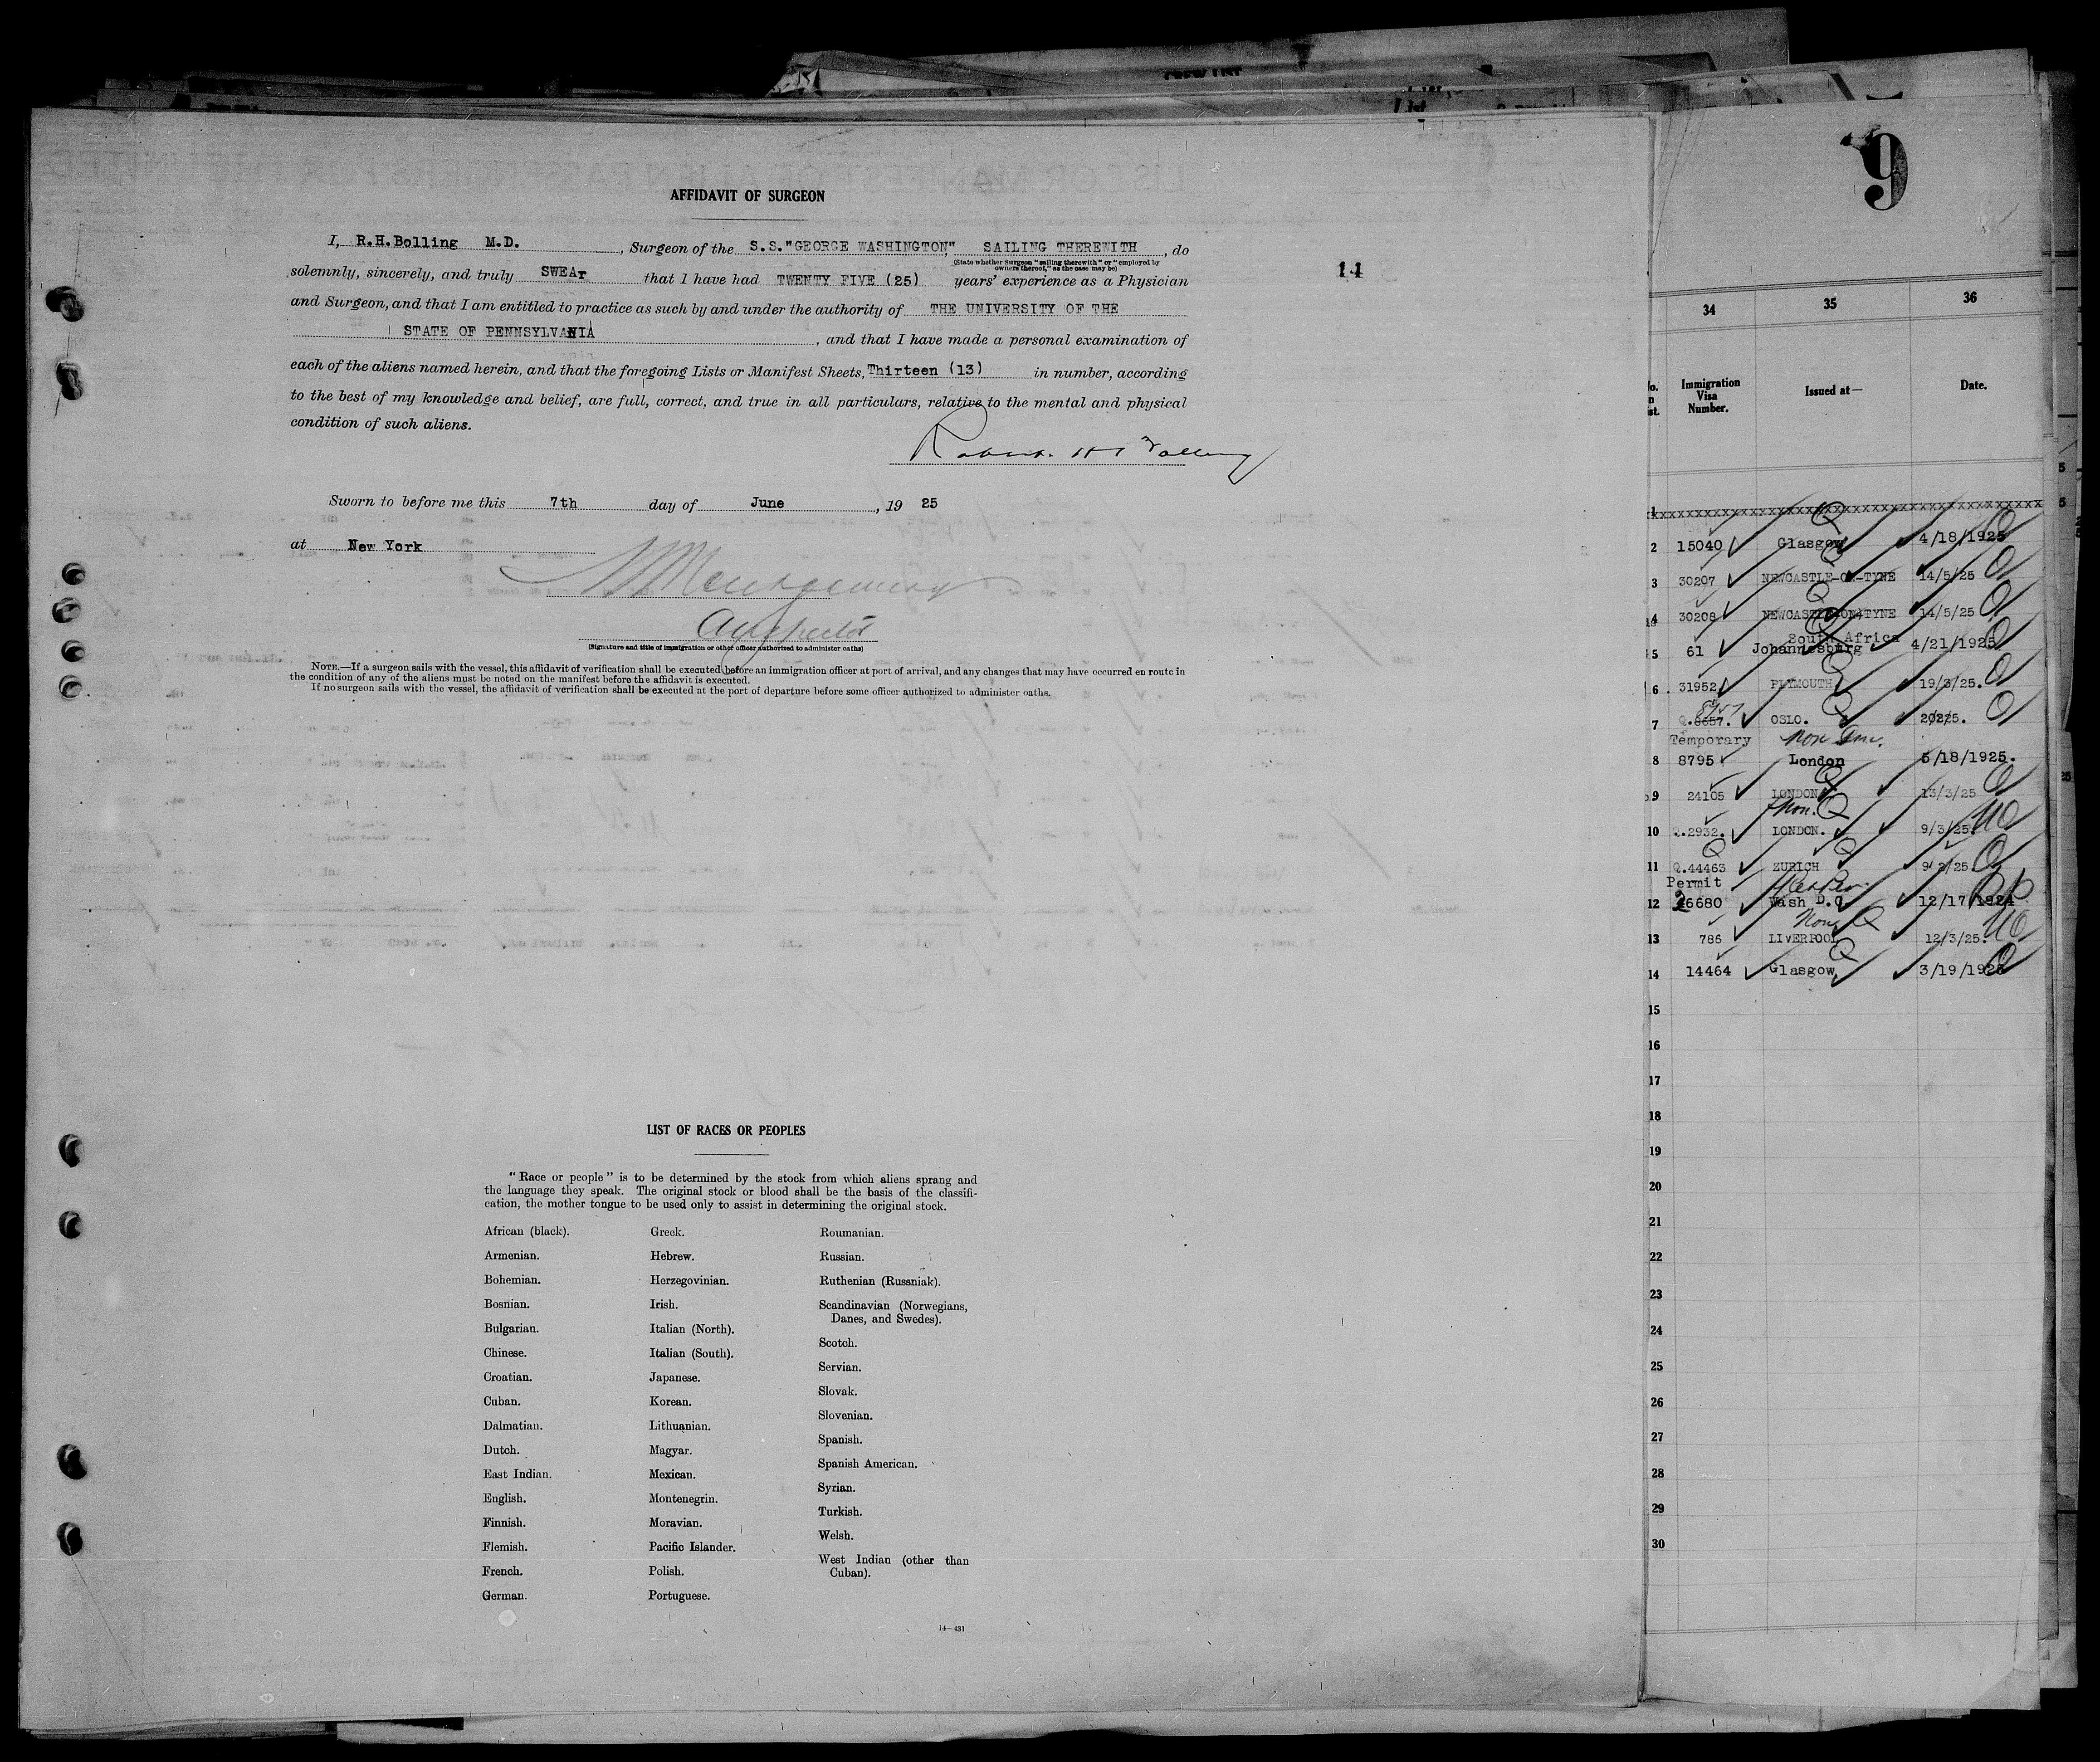 AFFIDAVIT OF SURGEON
I, R.H.Bolling M.D. , Surgeon of the S.S."GEORGE WASHINGTON", SAILING THEREWITH , do
(State whether Surgeon "sailing therewith" or "employed by owners thereof," as the case may be)
solemnly, sincerely, and truly SWEAr that I have had TWENTY FIVE (25) years' experience as a Physician
14
and Surgeon, and that I am entitled to practice as such by and under the authority of THE UNIVERSITY OF THE
STATE OF PENNSYLVANIA , and that I have made a personal examination of
each of the aliens named herein, and that the foregoing Lists or Manifest Sheets, Thirteen (13) in number, according
to the best of my knowledge and belief, are full, correct, and true in all particulars, relative to the mental and physical
condition of such aliens.
Robert H Bolling
Sworn to before me this 7th day of June , 19 25
at New York
Montgomery
(Signature and title of immigration or other officer authorized to administer oaths)
NOTE.—If a surgeon sails with the vessel, this affidavit of verification shall be executed before an immigration officer at port of arrival, and any changes that may have occurred en route in
the condition of any of the aliens must be noted on the manifest before the affidavit is executed.
If no surgeon sails with the vessel, the affidavit of verification shall be executed at the port of departure before some officer authorized to administer oaths.
LIST OF RACES OR PEOPLES
"Race or people" is to be determined by the stock from which aliens sprang and
the language they speak. The original stock or blood shall be the basis of the classifi-
cation, the mother tongue to be used only to assist in determining the original stock.
African (black).
Armenian.
Bohemian.
Bosnian.
Bulgarian.
Chinese.
Croatian.
Cuban.
Dalmatian.
Dutch.
East Indian.
English.
Finnish.
Flemish.
French.
German.
Greek.
Hebrew.
Herzegovinian.
Irish.
Italian (North).
Italian (South).
Japanese.
Korean.
Lithuanian.
Magyar.
Mexican.
Montenegrin.
Moravian.
Pacific Islander.
Polish.
Portuguese.
Roumanian.
Russian.
Ruthenian (Russniak).
Scandinavian (Norwegians,
Danes, and Swedes).
Scotch.
Servian.
Slovak.
Slovenian.
Spanish.
Spanish American.
Syrian.
Turkish.
Welsh.
West Indian (other than
Cuban).
14—431
9
34 35 36
Immigration Visa Number. Issued at— Date.
1 xxxxxxxxxxxxxxxxxxxxxxxxxxxxxxxx
2 15040 Glasgow 4/18/1925
3 30207 NEWCASTLE-ON-TYNE 14/5/25
4 30208 NEWCASTLE-ON-TYNE 14/5/25
South Africa
5 61 Johannesburg 4/21/1925
6 31952 PLYMOUTH 19/3/25.
7 OSLO.
Temporary Non Imm.
8 8795 London 5/18/1925.
9 24105 LONDON 13/3/25
Non. Q
10 Q.2932. LONDON. 9/3/25.
11 Q.44463 ZURICH 9/2/25
Permit
12 26680 Wash D.C. 12/17/1924
Non Q
13 786 LIVERPOOL 12/3/25.
14 14464 Glasgow 3/19/1925
15
16
17
18
19
20
21
22
23
24
25
26
27
28
29
30